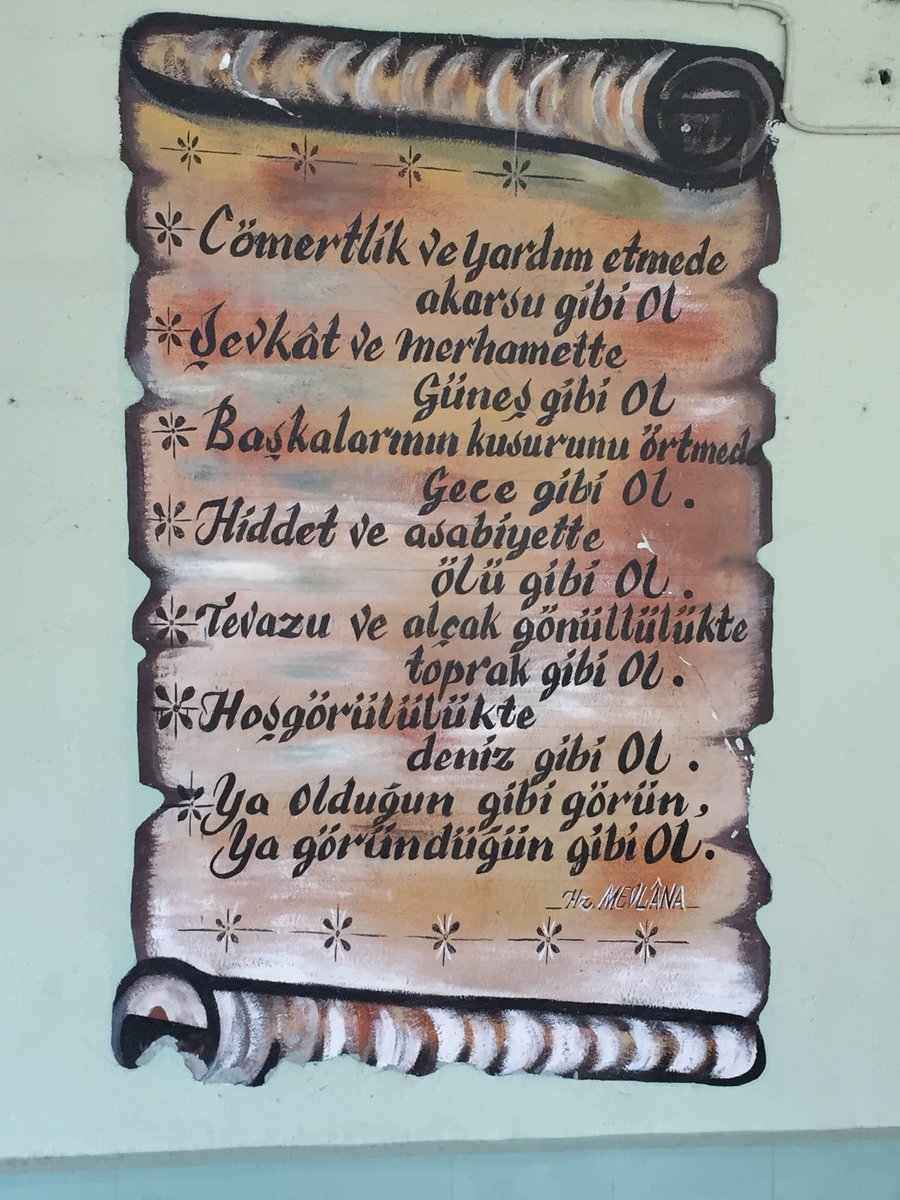 Cömertlik ve yardım etmede
akarsu gibi Ol
Şevkât ve merhamette
Güneş gibi OL
Başkalarının kusurunu örtmede
Gece gibi OL.
Hiddet ve asabiyette
ölü gibi OL.
Tevazu ve alçak gönüllülükte
toprak gibi OL.
Hoşgörülülükte
deniz gibi OL.
Ya olduğun gibi görün,
Ya göründüğün gibi OL.
_Hz. MEVLÂNA_